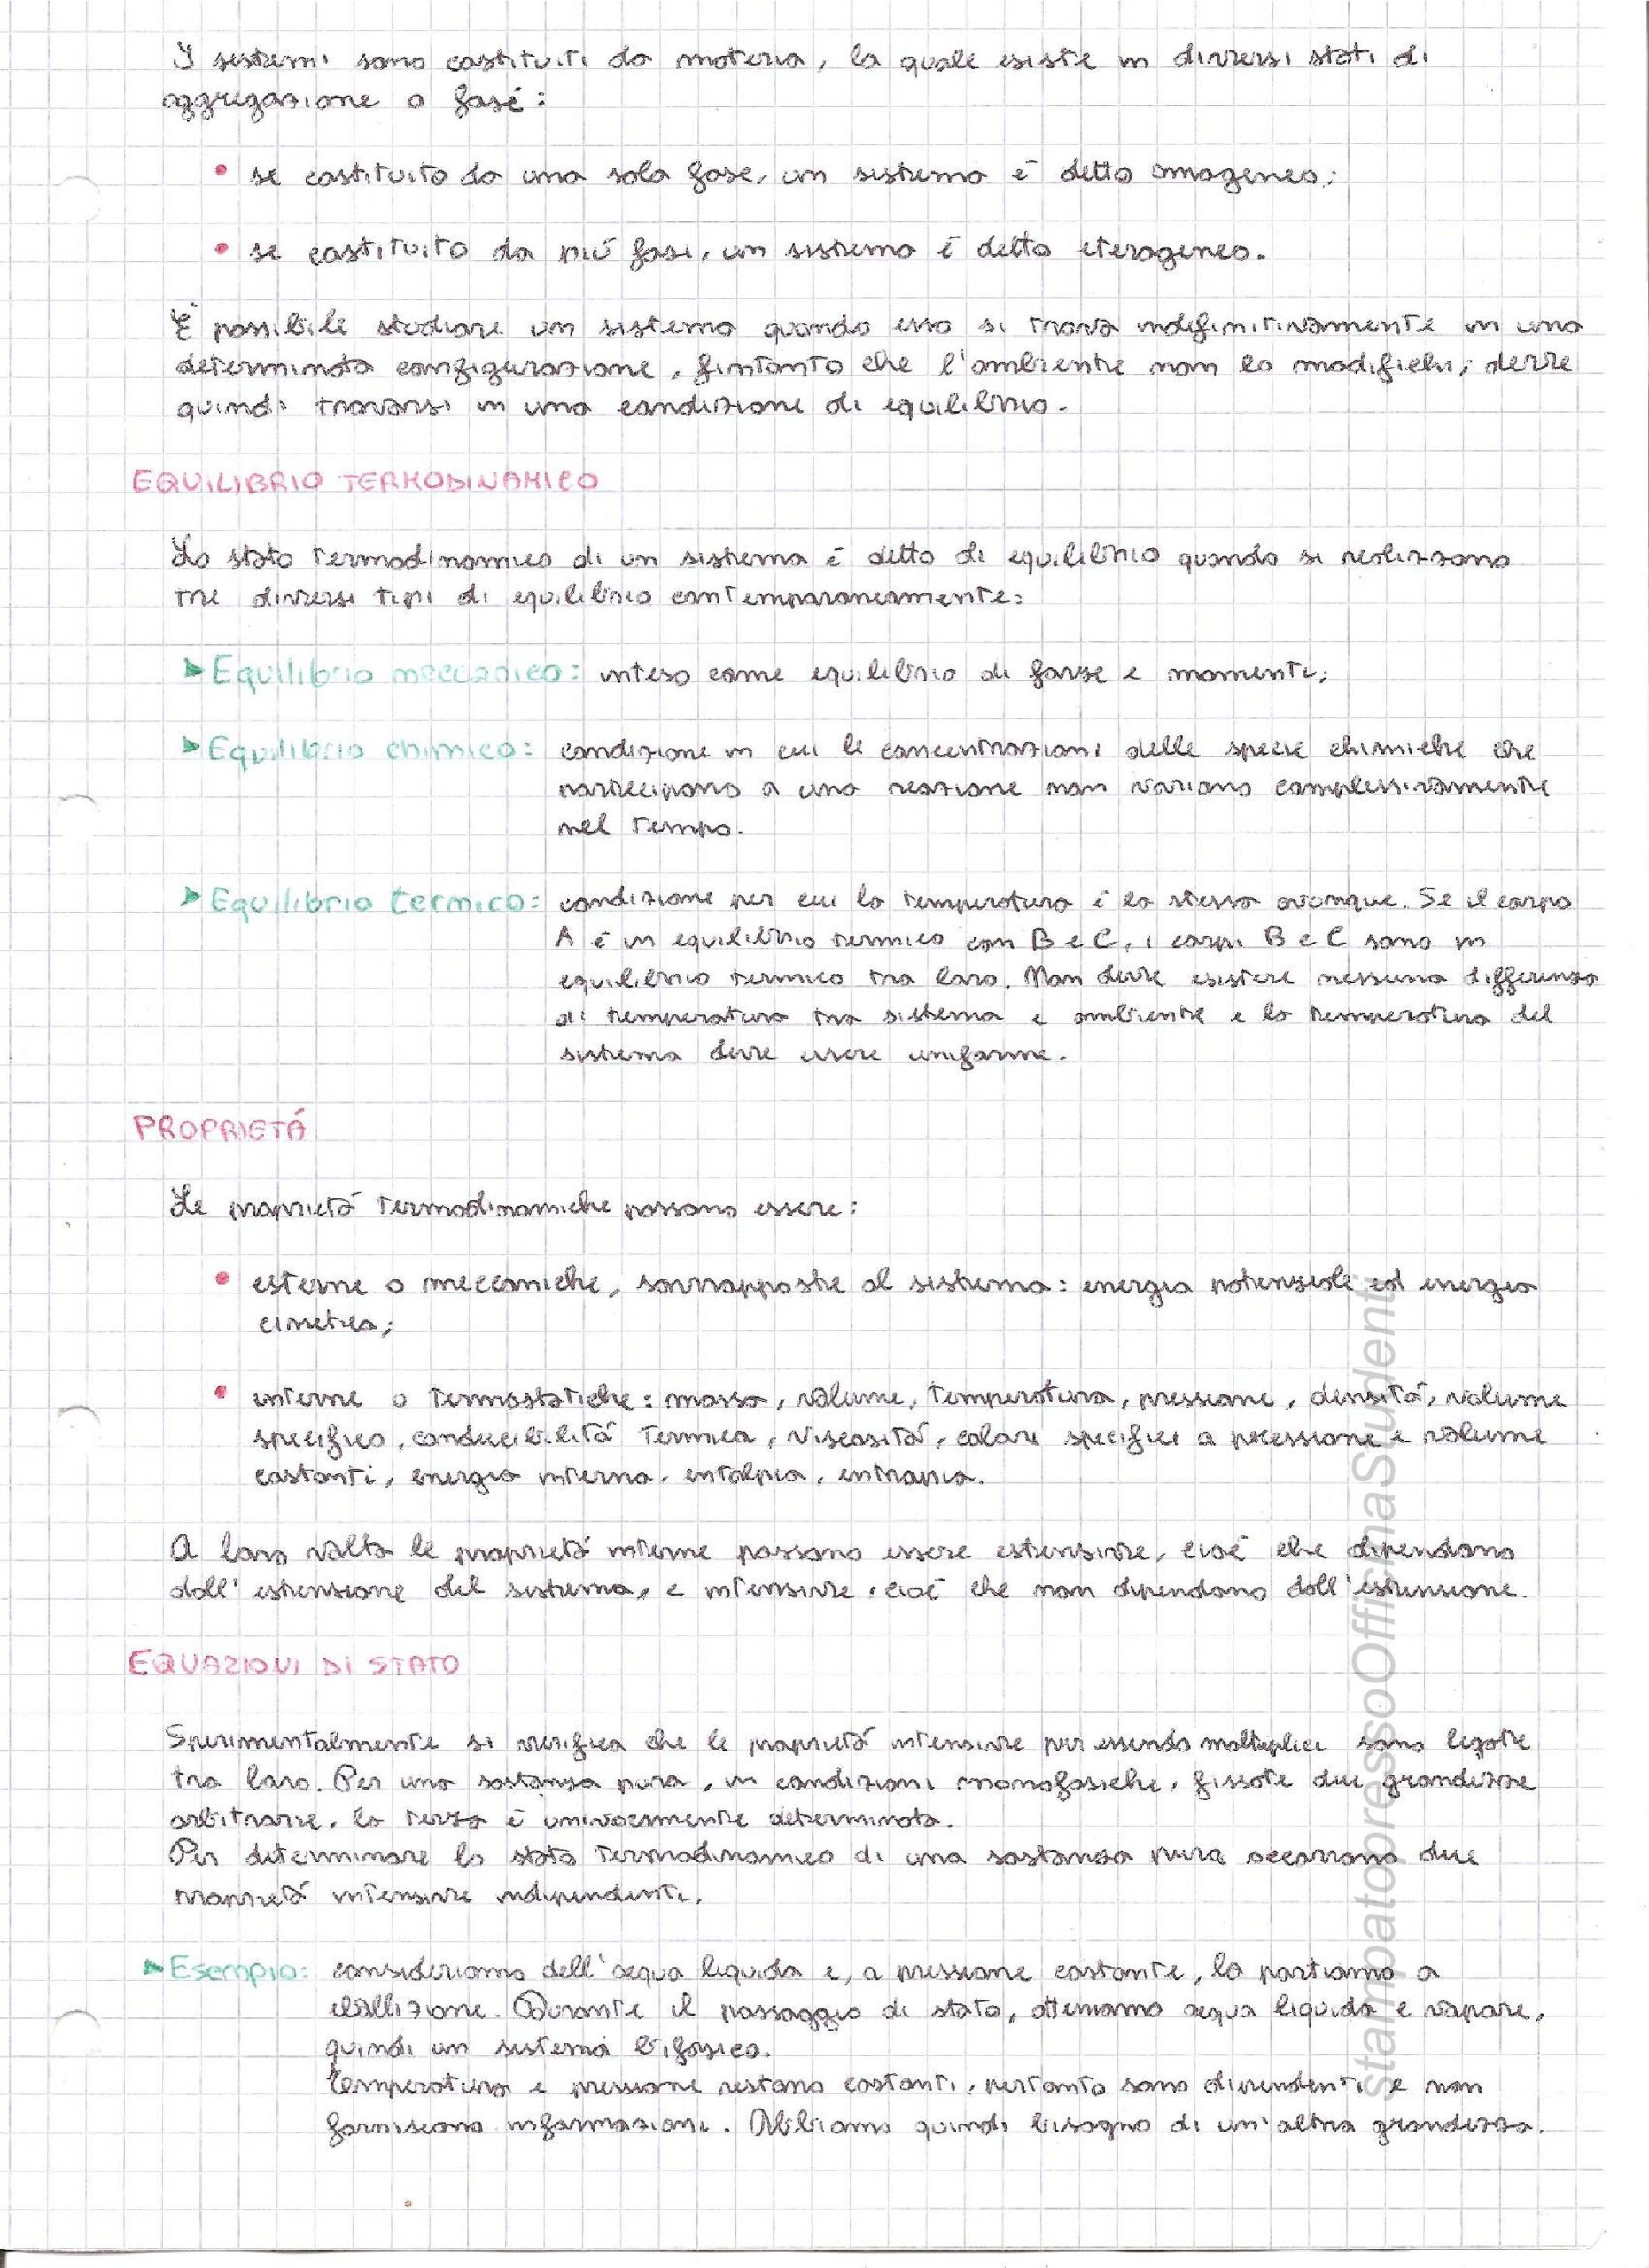 I sistemi sono costituiti da materia, la quale esiste in diversi stati di
aggregazione o fasi:
• se costituito da una sola fase, un sistema è detto omogeneo;
• se costituito da più fasi, un sistema è detto eterogeneo.
È possibile studiare un sistema quando esso si trova indefinitivamente in una
determinata configurazione, fintanto che l'ambiente non la modifichi; deve
quindi trovarsi in una condizione di equilibrio.
EQUILIBRIO TERMODINAMICO
Lo stato termodinamico di un sistema è detto di equilibrio quando si realizzano
tre diversi tipi di equilibrio contemporaneamente:
➤ Equilibrio meccanico: inteso come equilibrio di forze e momenti;
➤ Equilibrio chimico: condizione in cui le concentrazioni delle specie chimiche che
partecipano a una reazione non variano complessivamente
nel tempo.
➤ Equilibrio termico: condizione per cui la temperatura è la stessa ovunque. Se il corpo
A è in equilibrio termico con B e C, i corpi B e C sono in
equilibrio termico tra loro. Non deve esistere nessuna differenza
di temperatura tra sistema e ambiente e la temperatura del
sistema deve essere uniforme.
PROPRIETÁ
Le proprietá termodinamiche possono essere:
• esterne o meccaniche, sovrapposte al sistema: energia potenziale ed energia
cinetica;
• interne o termostatiche: massa, volume, temperatura, pressione, densitá, volume
specifico, conducibilitá termica, viscositá, calori specifici a pressione e volume
costanti, energia interna, entalpia, entropia.
A loro volta le proprietá interne possono essere estensive, cioé che dipendono
dall'estensione del sistema, e intensive, cioé che non dipendono dall'estensione.
EQUAZIONI DI STATO
Sperimentalmente si verifica che le proprietá intensive pur essendo molteplici sono legate
tra loro. Per una sostanza pura, in condizioni monofasiche, fissate due grandezze
arbitrarie, la terza è univocamente determinata.
Per determinare lo stato termodinamico di una sostanza pura occorrono due
proprietá intensive indipendenti.
➤ Esempio: consideriamo dell'acqua liquida e, a pressione costante, la portiamo a
ebollizione. Durante il passaggio di stato, otteniamo acqua liquida e vapore,
quindi un sistema bifasico.
Temperatura e pressione restano costanti, pertanto sono dipendenti e non
forniscono informazioni. Abbiamo quindi bisogno di un'altra grandezza.
stampatopressoOfficinaStudenti